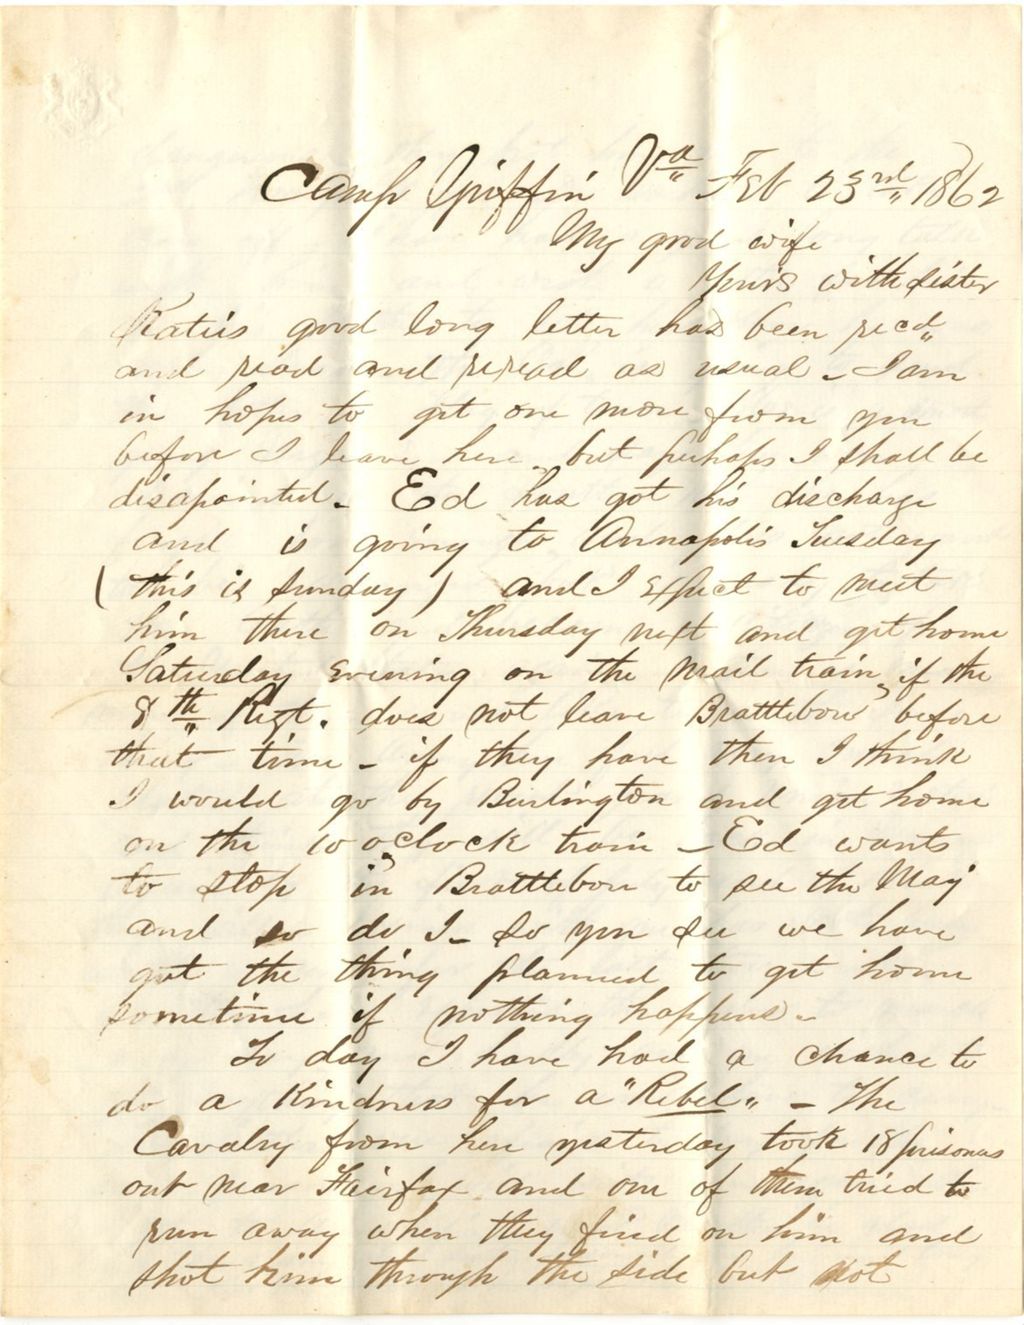 Camp Griffin Va Feb 23rd 1862
My good wife
Yours with sister
Katies good long letter has been recd
and read and reread as usual - I am
in hopes to get one more from you
before I leave here - but perhaps I shall be
disapointed - Ed has got his discharge
and is going to Annapolis Tuesday
(this is Sunday) and I expect to meet
him there on Thursday next and get home
Saturday evening on the mail train, if the
8th Regt. does not leave Brattleboro before
that time - if they have then I think
I would go by Burlington and get home
on the 10 oclock train - Ed wants
to stop in Brattleboro to see the Maj
and so do I - So you see we have
got the thing planned to get home
sometime if nothing happens -
To day I have had a chance to
do a kindness for a "Rebel" - The
Cavalry from here yesterday took 18 prisoners
out near Fairfax and one of them tried to
run away when they fired on him and
shot him through the side but not